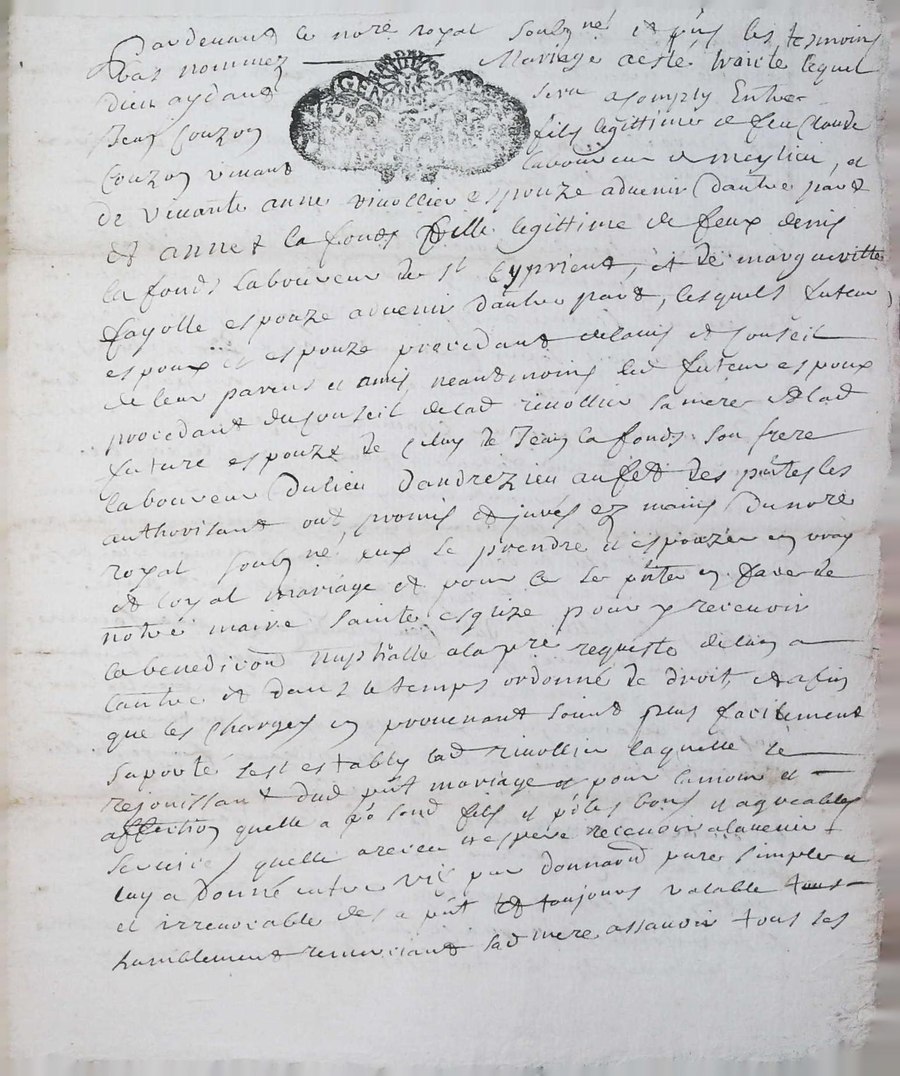 Pardevant le nore royal soubné et pns les tesmoins
bas nommez mariage a esté traicté lequel
dieu aydant sera acomply Entre
Jean Couzon fils legittime de feu Claude
Couzon vivant laboureur de meylieu, et
de vivante anne rivollier espouze advenir d'autre part
Et anne la fonds fille legittime de feux denis
la fonds laboureur de st Cyprient, et de margueritte
fayolle espouze advenir d'autre part, lesquels futeur
espoux et espouze procedant de lavis et conseil
de leur parens et amis neantmoins led futeur espoux
procedant du conseil de lad rivollier sa mere Et lad
future espouze de celuy de Jean la fonds son frere
laboureur du lieu d'andrezieu au fet des pntes les
authorisant ont promis et jurés ez mains du nore
royal soubné eux se prendre et espouzer en vray
et loyal mariage et pour ce se pnter en face de
notre maire sainte esglize pour y recevoir
la benediction nuptialle a la pre requeste de lun a
lautre et dans le temps ordonné de droit, et afin
que les charges en provenant soint plus facilement
suporté sest estably lad rivollier laquelle se
rejouissant dud pnt mariage et pour lamour et
affection quelle a po sond fils et po les bons et agreables
services quelle a receu et espere recevoir a ladvenir
luy a donné entre vifs par donnaon pure simple et
et irrevocable des a pnt et toujours valable tous
humblement remerciant sad mere assavoir tous les